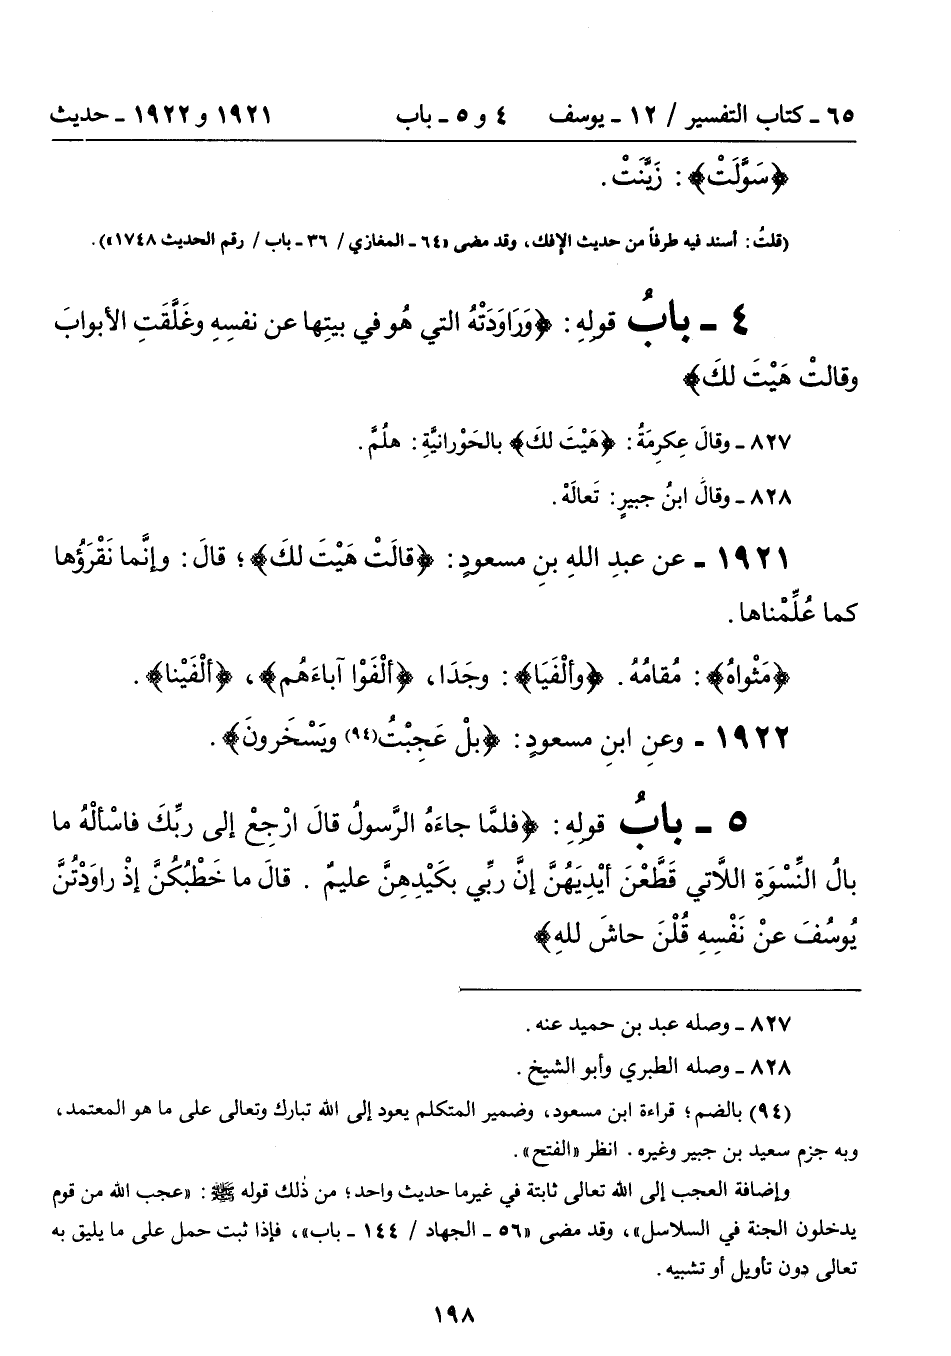 ٦٥ ـ كتاب التفسير / ١٢ ـ يوسف ٤ و ٥ ـ باب ١٩٢١ و ١٩٢٢ ـ حديث
﴿سَوَّلَتْ﴾: زَيَّنَتْ.
(قلتُ: أسند فيه طرفاً من حديث الإفك، وقد مضى «٦٤ ـ المغازي / ٣٦ ـ باب / رقم الحديث ١٧٤٨»).
٤ ـ بابُ قولِهِ: ﴿وَرَاوَدَتْهُ التي هُو في بيتِها عن نفسِهِ وغَلَّقَتِ الأبوابَ
وقالتْ هَيْتَ لكَ﴾
٨٢٧ ـ وقالَ عِكرِمَةُ: ﴿هَيْتَ لكَ﴾ بالحَوْرانيَّةِ: هلُمَّ.
٨٢٨ ـ وقالَ ابنُ جبيرٍ: تَعالَهْ.
١٩٢١ ـ عن عبدِ اللهِ بنِ مسعودٍ: ﴿قالَتْ هَيْتَ لكَ﴾؛ قالَ: وإنَّما نَقْرَؤُها
كما عُلِّمْناها.
﴿مَثْواهُ﴾: مُقامُهُ. ﴿وألْفَيَا﴾: وجَدَا، ﴿ألْفَوْا آباءَهُم﴾، ﴿ألْفَيْنا﴾.
١٩٢٢ ـ وعنِ ابنِ مسعودٍ: ﴿بلْ عَجِبْتُ(٩٤) ويَسْخَرونَ﴾.
٥ ـ بابُ قولِهِ: ﴿فلمَّا جاءَهُ الرَّسولُ قالَ ارْجِعْ إلى ربِّكَ فاسْألْهُ ما
بالُ النِّسْوَةِ اللَّاتي قَطَّعْنَ أيْدِيَهُنَّ إنَّ ربِّي بكَيْدِهِنَّ عليمٌ . قالَ ما خَطْبُكُنَّ إذْ راوَدْتُنَّ
يُوسُفَ عنْ نَفْسِهِ قُلْنَ حاشَ للهِ﴾
٨٢٧ ـ وصله عبد بن حميد عنه.
٨٢٨ ـ وصله الطبري وأبو الشيخ.
(٩٤) بالضم؛ قراءة ابن مسعود، وضمير المتكلم يعود إلى الله تبارك وتعالى على ما هو المعتمد،
وبه جزم سعيد بن جبير وغيره. انظر «الفتح».
وإضافة العجب إلى الله تعالى ثابتة في غيرما حديث واحد؛ من ذٰلك قوله ﷺ: «عجب الله من قوم
يدخلون الجنة في السلاسل»، وقد مضى «٥٦ ـ الجهاد / ١٤٤ ـ باب»، فإذا ثبت حمل على ما يليق به
تعالى دون تأويل أو تشبيه.
١٩٨